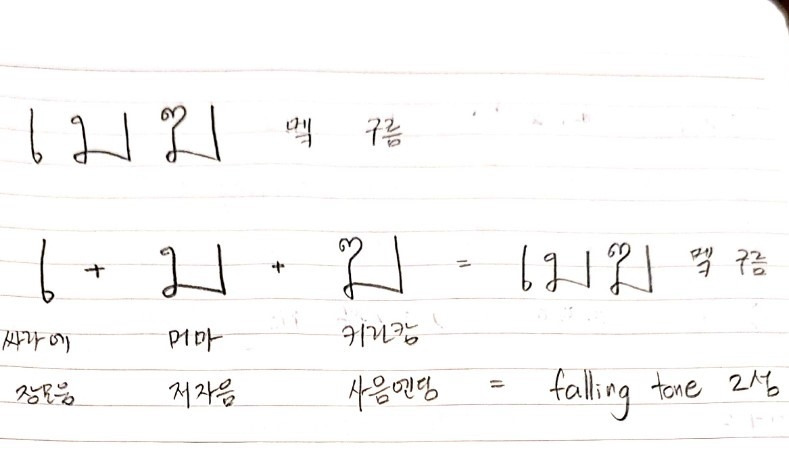 เมฆ 멕 구름
เ + ม + ฆ = เมฆ 멕 구름
싸라에 머마 커라캉
장모음 저자음 사음엔딩 = falling tone 2성